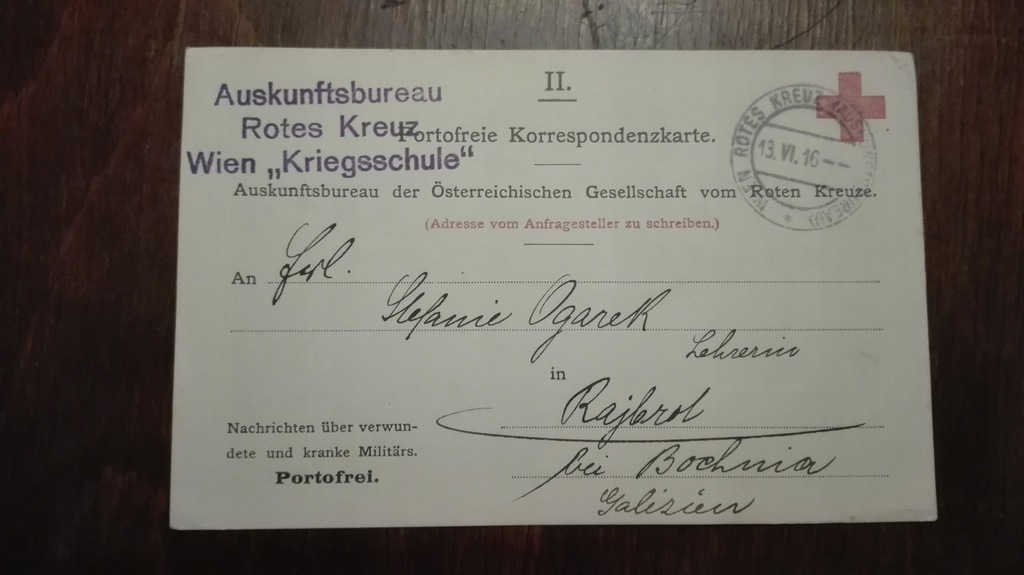 II.
Auskunftsbureau
Rotes Kreuz
Wien „Kriegsschule“
Portofreie Korrespondenzkarte.
WIEN ROTES KREUZ
13.VI.16
Auskunftsbureau der Österreichischen Gesellschaft vom Roten Kreuze.
(Adresse vom Anfragesteller zu schreiben.)
An Frl.
Stefanie Ogarek
Lehrerin
in
Rajbrot
bei Bochnia
Galizien
Nachrichten über verwun-
dete und kranke Militärs.
Portofrei.